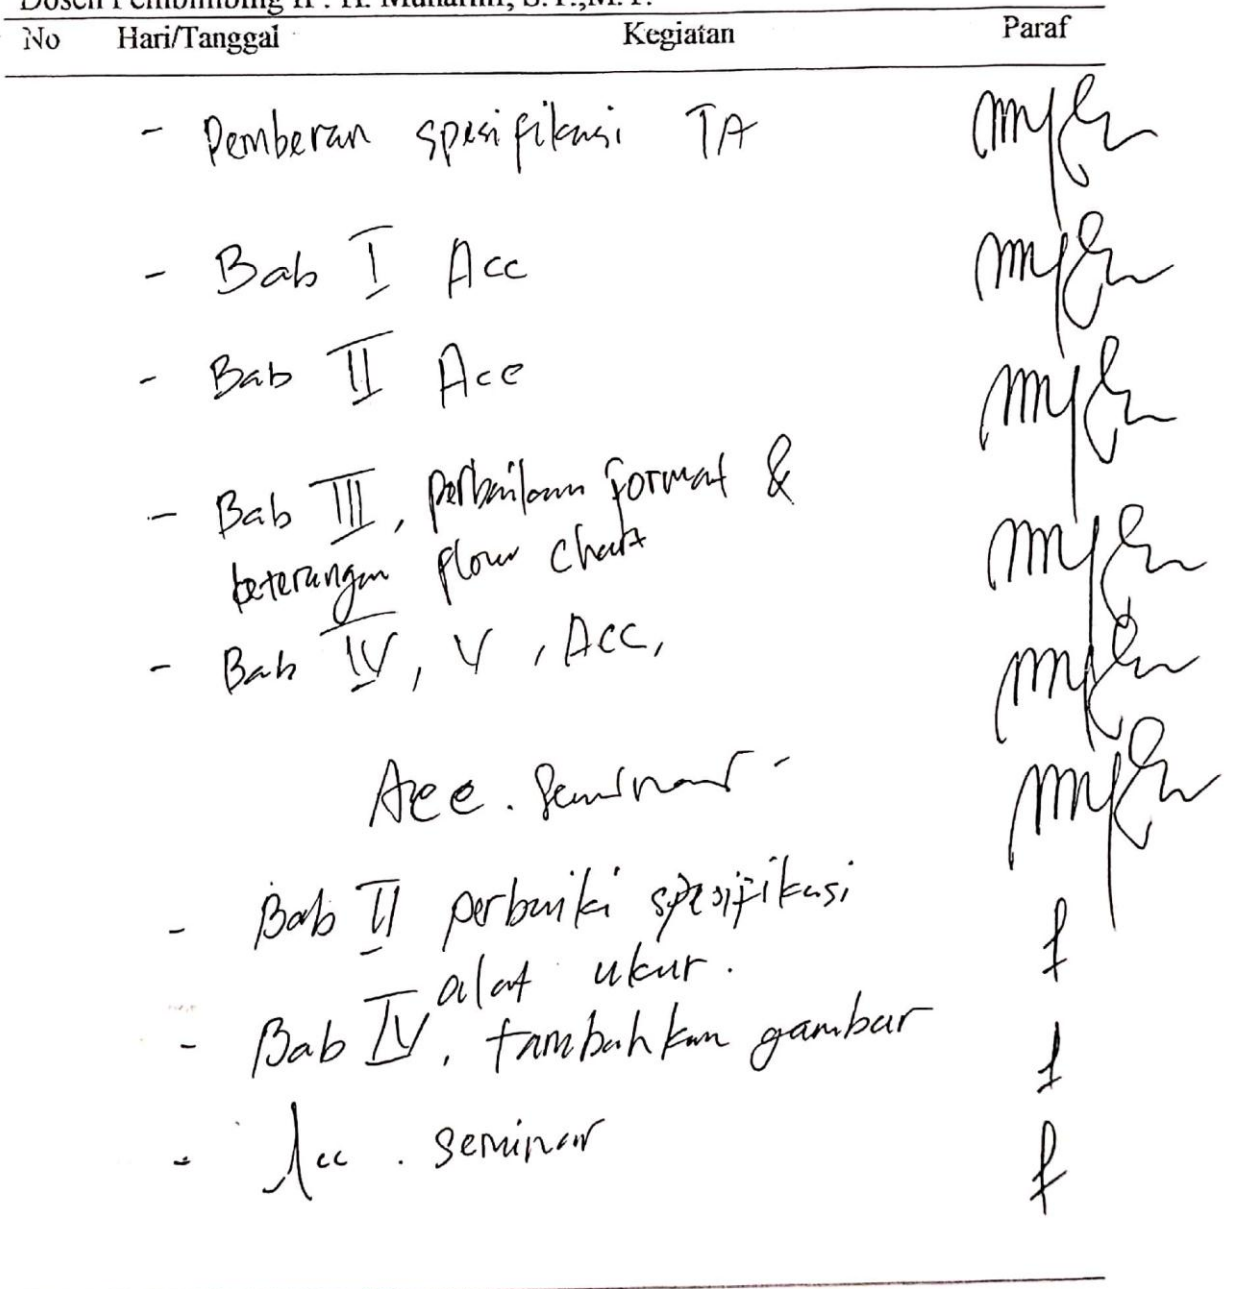 Dosen Pembimbing II : H. Muharni, S.T.,M.T.
No Hari/Tanggal Kegiatan Paraf
- Pemberan spesifikasi TA
- Bab I Acc
- Bab II Acc
- Bab III, perbaikan format &
keterangan flow chart
- Bab IV, V, Acc,
Acc. Seminar -
- Bab II perbaiki spesifikasi
alat ukur.
- Bab IV, tambahkan gambar
- Acc. seminar